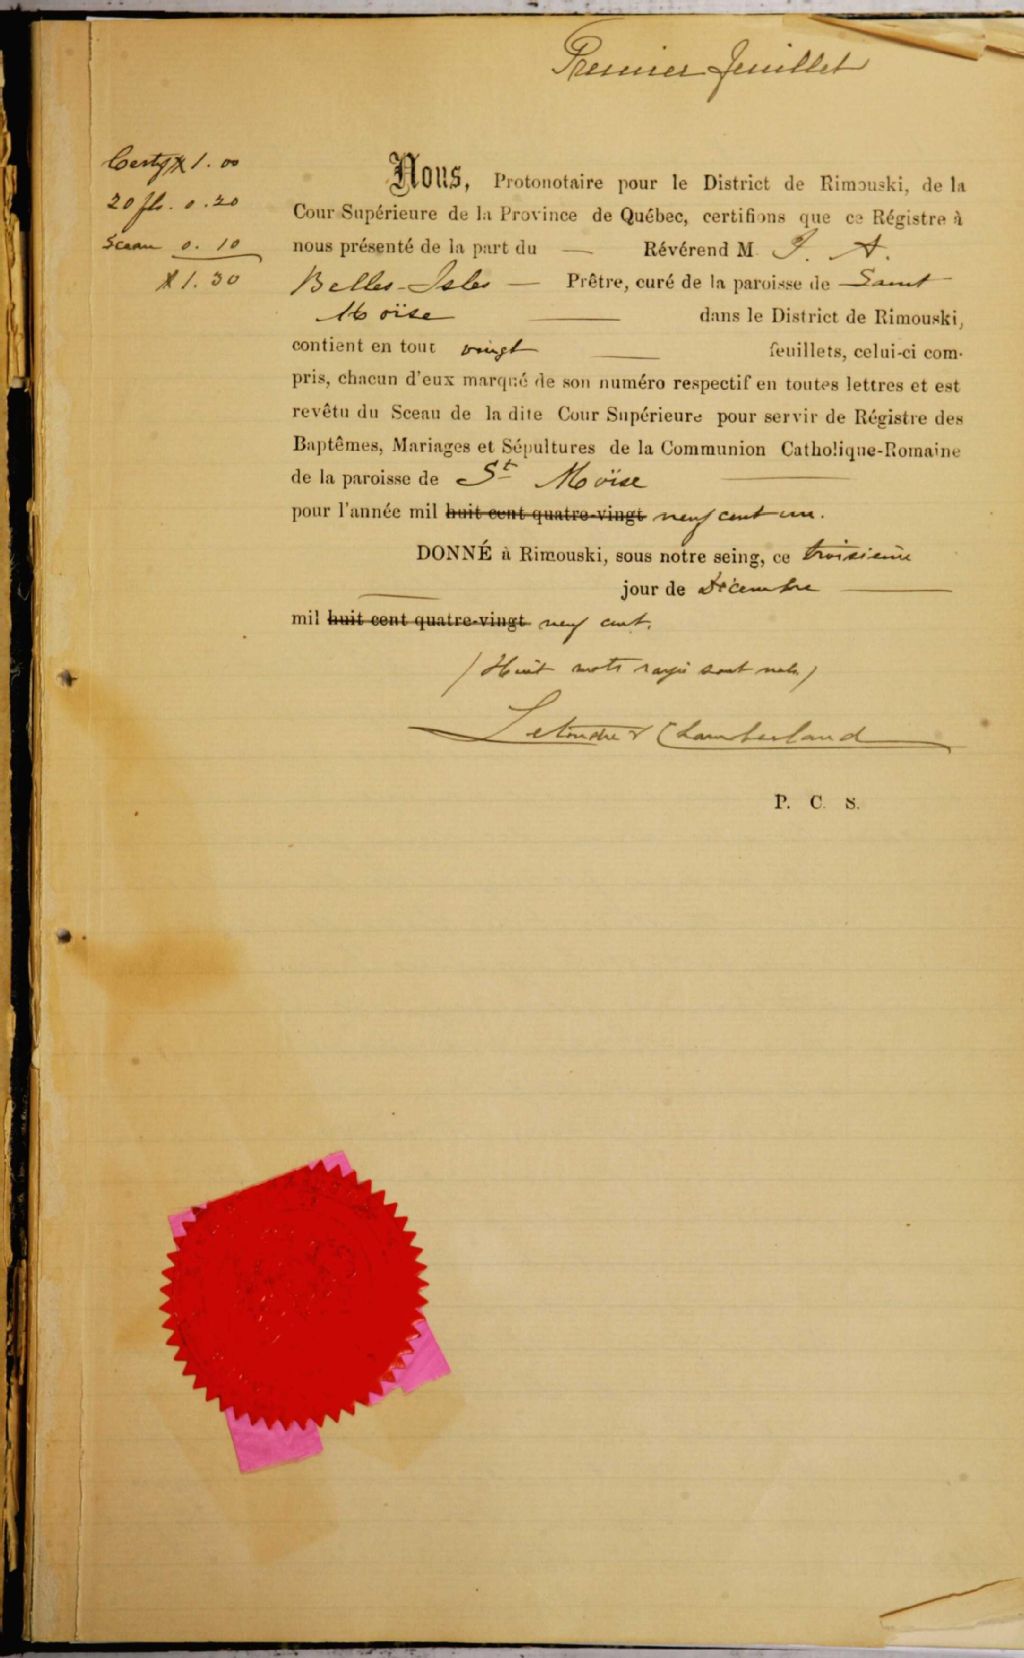 Premier feuillet
Certif $1.00
20 fls. 0.20
Sceau 0.10
$1.30
Nous, Protonotaire pour le District de Rimouski, de la
Cour Supérieure de la Province de Québec, certifions que ce Régistre à
nous présenté de la part du — Révérend M. J. A.
Belles-Isles — Prêtre, curé de la paroisse de Saint
Moïse — dans le District de Rimouski,
contient en tout vingt — feuillets, celui-ci com-
pris, chacun d'eux marqué de son numéro respectif en toutes lettres et est
revêtu du Sceau de la dite Cour Supérieure pour servir de Régistre des
Baptêmes, Mariages et Sépultures de la Communion Catholique-Romaine
de la paroisse de St Moïse —
pour l'année mil huit cent quatre-vingt neuf cent un.
DONNÉ à Rimouski, sous notre seing, ce troisième
— jour de Décembre —
mil huit cent quatre-vingt neuf cent.
(Huit mots rayés sont nuls)
Letendre & Chamberland
P. C. S.